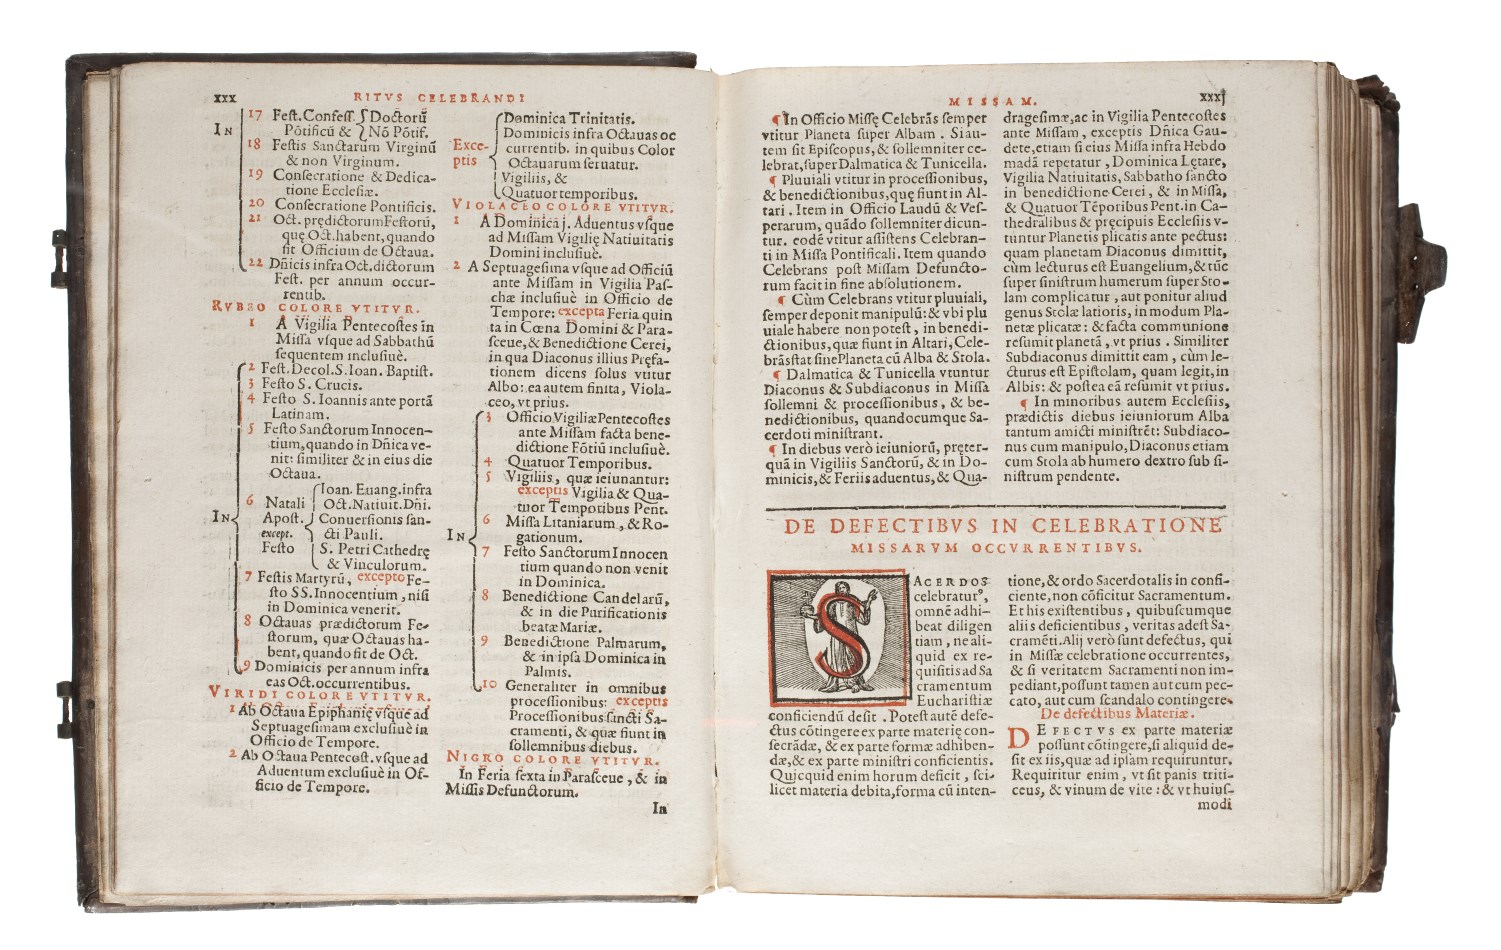 xxx
RITVS CELEBRANDI
IN
17 Fest. Confess. Doctorū
Pōtificū & Nō Pōtif.
18 Festis Sanctarum Virginū
& non Virginum.
19 Consecratione & Dedica-
tione Ecclesiæ.
20 Consecratione Pontificis.
21 Oct. prędictorum Festorū,
quę Oct. habent, quando
fit Officium de Octaua.
22 Dñicis infra Oct. dictorum
Fest. per annum occur-
rentib.
RVBEO COLORE VTITVR.
1 A Vigilia Pentecostes in
Missa vsque ad Sabbathū
sequentem inclusiuè.
IN
2 Fest. Decol. S. Ioan. Baptist.
3 Festo S. Crucis.
4 Festo S. Ioannis ante portā
Latinam.
5 Festo Sanctorum Innocen-
tium, quando in Dñica ve-
nit: similiter & in eius die
Octaua.
6 Natali Apost. except. Festo
Ioan. Euang. infra
Oct. Natiuit. Dñi.
Conuersionis san-
cti Pauli.
S. Petri Cathedrę
& Vinculorum.
7 Festis Martyrū, excepto Fe-
sto SS. Innocentium, nisi
in Dominica venerit.
8 Octauas prædictorum Fe-
storum, quæ Octauas ha-
bent, quando fit de Oct.
9 Dominicis per annum infra
eas Oct. occurrentibus.
VIRIDI COLORE VTITVR.
1 Ab Octaua Epiphanię vsque ad
Septuagesimam exclusiuè in
Officio de Tempore.
2 Ab Octaua Pentecost. vsque ad
Aduentum exclusiuè in Of-
ficio de Tempore.
Exce-
ptis
Dominica Trinitatis.
Dominicis infra Octauas oc
currentib. in quibus Color
Octauarum seruatur.
Vigiliis, &
Quatuor temporibus.
VIOLACEO COLORE VTITVR.
1 A Dominica j. Aduentus vsque
ad Missam Vigilię Natiuitatis
Domini inclusiuè.
2 A Septuagesima vsque ad Officiū
ante Missam in Vigilia Pas-
chæ inclusiuè in Officio de
Tempore: excepta Feria quin
ta in Cœna Domini & Para-
sceue, & Benedictione Cerei,
in qua Diaconus illius Pręfa-
tionem dicens solus vtitur
Albo: ea autem finita, Viola-
ceo, vt prius.
IN
3 Officio Vigiliæ Pentecostes
ante Missam facta bene-
dictione Fōtiū inclusiuè.
4 Quatuor Temporibus.
5 Vigiliis, quæ ieiunantur:
exceptis Vigilia & Qua-
tuor Temporibus Pent.
6 Missa Litaniarum, & Ro-
gationum.
7 Festo Sanctorum Innocen
tium quando non venit
in Dominica.
8 Benedictione Candelarū,
& in die Purificationis
beatæ Mariæ.
9 Benedictione Palmarum,
& in ipsa Dominica in
Palmis.
10 Generaliter in omnibus
processionibus: exceptis
Processionibus sancti Sa-
cramenti, & quæ fiunt in
sollemnibus diebus.
NIGRO COLORE VTITVR.
In Feria sexta in Parasceue, & in
Missis Defunctorum.
In
MISSAM.
xxxj
¶ In Officio Missę Celebrās semper
vtitur Planeta super Albam. Si au-
tem sit Episcopus, & sollemniter ce-
lebrat, super Dalmatica & Tunicella.
¶ Pluuiali vtitur in processionibus,
& benedictionibus, quę fiunt in Al-
tari. Item in Officio Laudū & Ves-
perarum, quādo sollemniter dicun-
tur. eodē vtitur assistens Celebran-
ti in Missa Pontificali. Item quando
Celebrans post Missam Defuncto-
rum facit in fine absolutionem.
¶ Cùm Celebrans vtitur pluuiali,
semper deponit manipulū: & vbi plu
uiale habere non potest, in benedi-
ctionibus, quæ fiunt in Altari, Cele-
brās stat sine Planeta cū Alba & Stola.
¶ Dalmatica & Tunicella vtuntur
Diaconus & Subdiaconus in Missa
sollemni & processionibus, & be-
nedictionibus, quandocumque Sa-
cerdoti ministrant.
¶ In diebus verò ieiuniorū, pręter-
quā in Vigiliis Sanctorū, & in Do-
minicis, & Feriis aduentus, & Qua-
dragesimæ, ac in Vigilia Pentecostes
ante Missam, exceptis Dñica Gau-
dete, etiam si eius Missa infra Hebdo
madā repetatur, Dominica Lętare,
Vigilia Natiuitatis, Sabbatho sancto
in benedictione Cerei, & in Missa,
& Quatuor Tēporibus Pent. in Ca-
thedralibus & pręcipuis Ecclesiis v-
tuntur Planetis plicatis ante pectus:
quam planetam Diaconus dimittit,
cùm lecturus est Euangelium, & tūc
super sinistrum humerum super Sto-
lam complicatur, aut ponitur aliud
genus Stolæ latioris, in modum Pla-
netæ plicatæ: & facta communione
resumit planetā, vt prius. Similiter
Subdiaconus dimittit eam, cùm le-
cturus est Epistolam, quam legit, in
Albis: & postea eā resumit vt prius.
¶ In minoribus autem Ecclesiis,
prædictis diebus ieiuniorum Alba
tantum amicti ministrēt: Subdiaco-
nus cum manipulo, Diaconus etiam
cum Stola ab humero dextro sub si-
nistrum pendente.
DE DEFECTIBVS IN CELEBRATIONE
MISSARVM OCCVRRENTIBVS.
SACERDOS
celebratur⁹,
omnē adhi-
beat diligen
tiam, ne ali-
quid ex re-
quisitis ad Sa
cramentum
Eucharistiæ
conficiendū desit. Potest autē defe-
ctus cōtingere ex parte materię con-
secrādæ, & ex parte formæ adhiben-
dæ, & ex parte ministri conficientis.
Quicquid enim horum deficit, sci-
licet materia debita, forma cū inten-
tione, & ordo Sacerdotalis in confi-
ciente, non cōficitur Sacramentum.
Et his existentibus, quibuscumque
aliis deficientibus, veritas adest Sa-
cramēti. Alij verò sunt defectus, qui
in Missæ celebratione occurrentes,
& si veritatem Sacramenti non im-
pediant, possunt tamen aut cum pec-
cato, aut cum scandalo contingere.
De defectibus Materiæ.
DEFECTVS ex parte materiæ
possunt cōtingere, si aliquid de-
sit ex iis, quæ ad ipsam requiruntur.
Requiritur enim, vt sit panis triti-
ceus, & vinum de vite: & vt huius-
modi